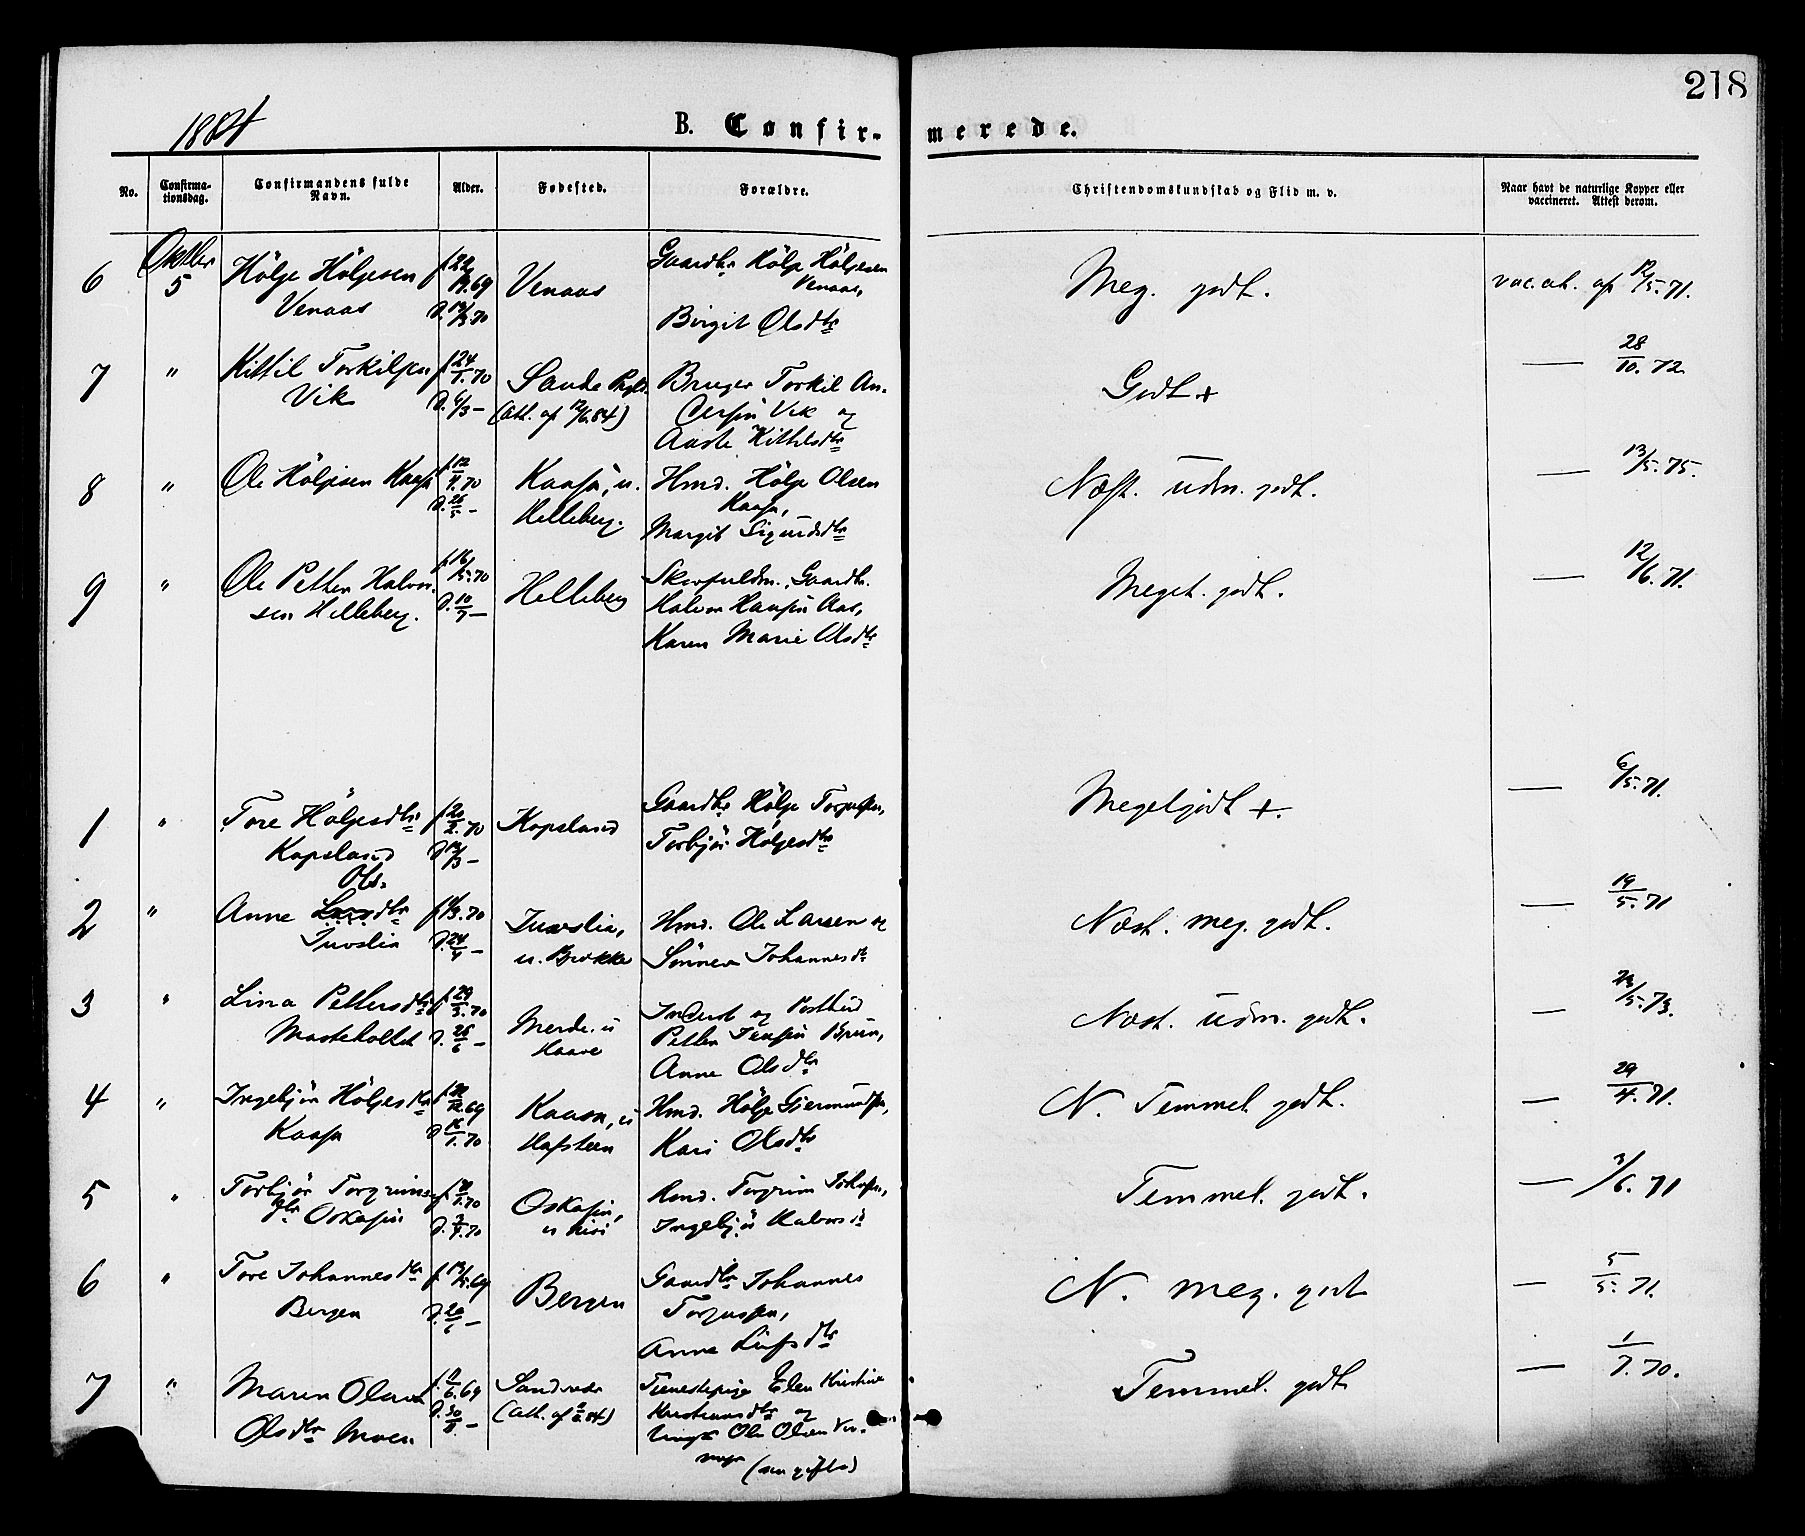 218
1884
B. Confirmerede.
No.
Confirma-
tionsdag.
Confirmandens fulde
Navn.
Alder.
Fødested.
Forældre.
Christendomskundskab og Flid m. v.
Naar havt de naturlige Kopper eller
vaccineret. Attest derom.
6 Oktber 5 Hölje Höljesen Venaas f. 22/ .69 d. /3 70 Venaas Gaardbr. Hölje Höljesen Venaas, Birgit Olsdtr Meg. godt. vac. at. af 12/5.71.
7 " Kittil Torkilsen Vik f. 24/1.70 d. 6/3 — Saude Prgld. (Att. af 12/6.84) Bruger Torkil Andersen Vik og Aaste Kittilsdtr Godt + — 28/10.72
8 " Ole Höljesen Kaasa f. 12/4.70 d. 26/5 — Kaasa, u. Helleberg. Hmd. Hölje Olsen Kaasa, Margit Sigurdsdtr Næst. udm. godt. — 13/5.75.
9 " Ole Petter Halvorsen Helleberg. f. 16/5.70 d. 10/7 — Helleberg Gaardbr. Halvor Hansen Aas, Karen Marie Olsdtr Meget. godt. — 12/6.71.
1 " Tore Höljesdtr Kopsland f. 20/2.70 d. /3 — Kopsland Gaardbr. Hölje Torjussen, Torbjör Höljesdtr Meget godt +. — 6/5.71.
2 " Anne Ols. Larsdtr Juvslia f. /3.70 d. 24/4 — Juvslia, u. Brokke Hmd. Ole Larsen og Sönnev Johannesd. Næst. meg. godt. — 19/5.71
3 " Lina Pettersdtr Masteholtet f. 29/3.70 d. 26/6 — Merde. u Haave Inderst og Postbud Petter Jensen Bruun, Anne Olsdtr Næst. udm. godt. — 23/5.73.
4 " Ingebjör Höljesdtr Kaasa f. /12.69 d. 16/1.70 Kaasa, u Hafsteen Hmd. Hölje Gjermundsen, Kari Olsdtr N. Temmel. godt. — 29/4.71.
5 " Torbjör Torgrimsdtr Oskasin f. /1.70 d. /4.70 Oskasin, Hmd. Torgrim Ingebjör Halvorsd. Temmel. godt. — 3/6.71
6 " Tore Johannesdtr Bergen f. 13/5.69 d. 20/6 — Bergen Gaardbr Johannes Torjussen, Anne Leifsdtr N. meg. godt — 5/5.71.
7 " Maren Olava Olsdtr Moen f. /6.69 d. 30/8 — (Att. af /6.84) Tjenestepige Elen Kristine Kristiansdtr og Ungk. Ole Olsen (nu gifte) Temmel. godt — 1/7.70.